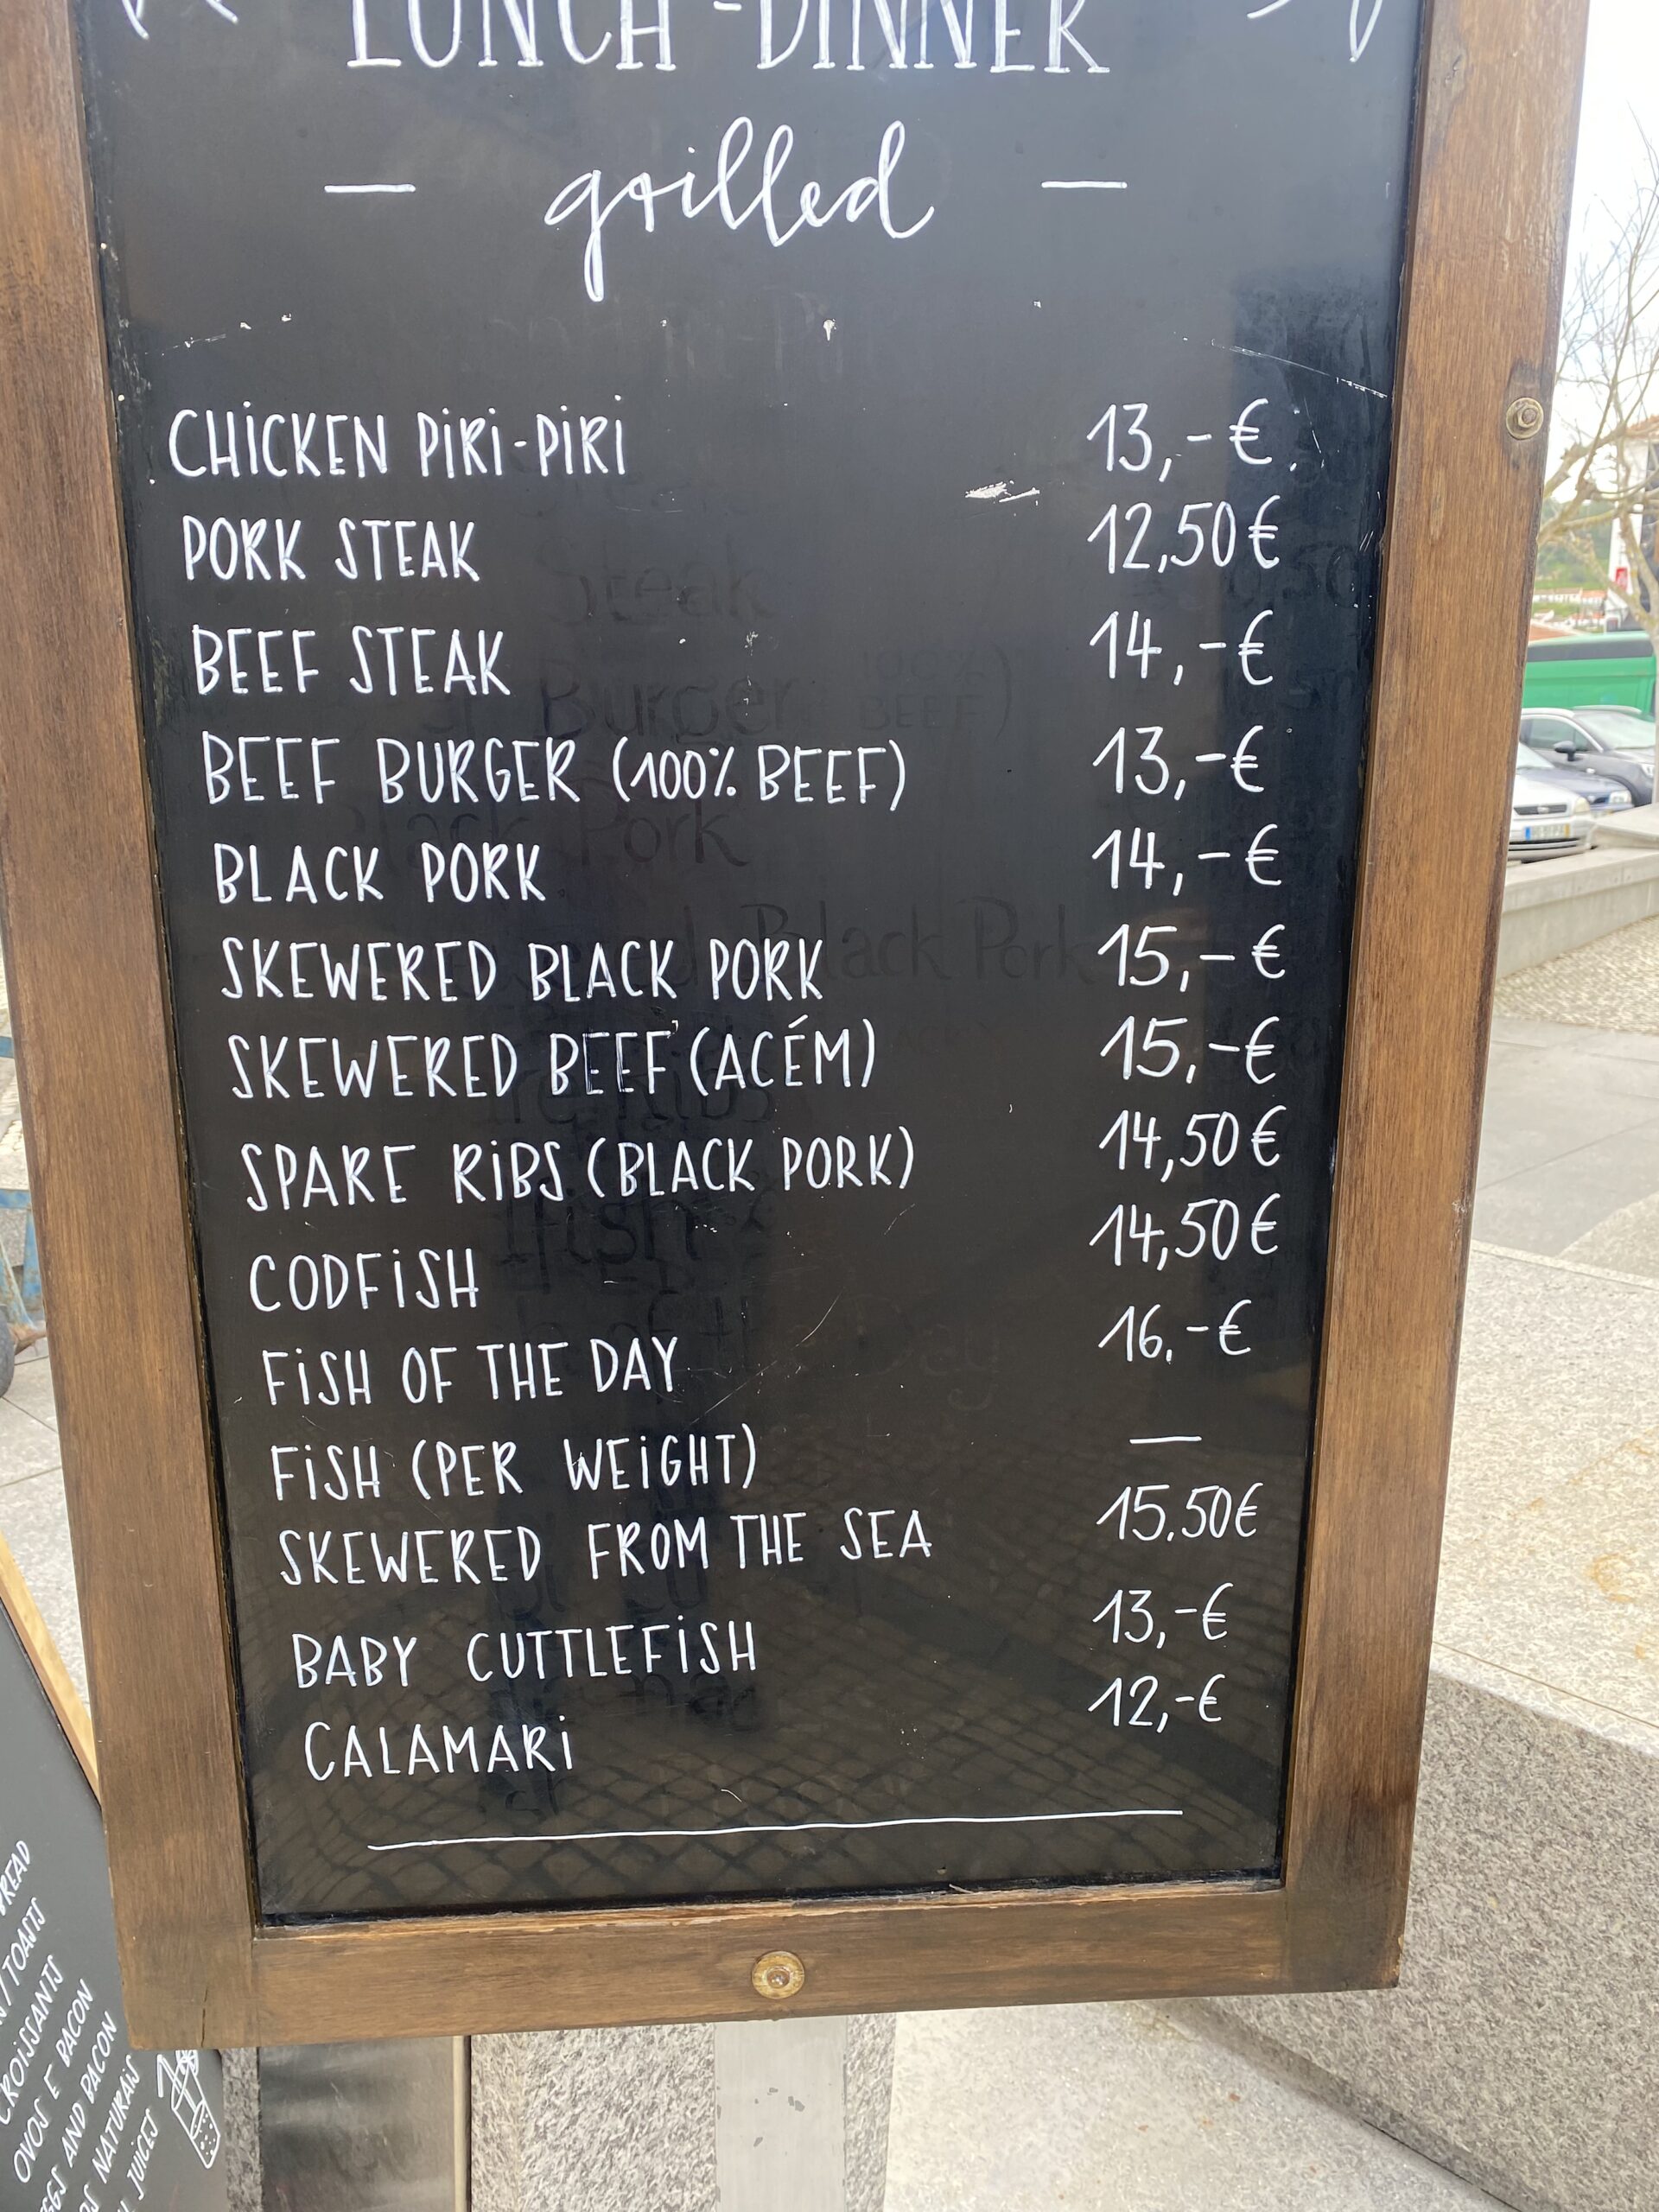 LUNCH - DINNER
— grilled —
CHiCKEN PiRi-PiRi 13,-€
PORK STEAK 12,50€
BEEF STEAK 14,-€
BEEF BURGER (100% BEEF) 13,-€
BLACK PORK 14,-€
SKEWERED BLACK PORK 15,-€
SKEWERED BEEF (ACÉM) 15,-€
SPARE RiBS (BLACK PORK) 14,50€
CODFiSH 14,50€
FiSH OF THE DAY 16.-€
FiSH (PER WEiGHT) —
SKEWERED FROM THE SEA 15.50€
BABY CUTTLEFiSH 13,-€
CALAMARi 12,-€
TOASTS
CROiSSANTS
OVOS E BACON
AND BACON
NATURAiS
JUiCES